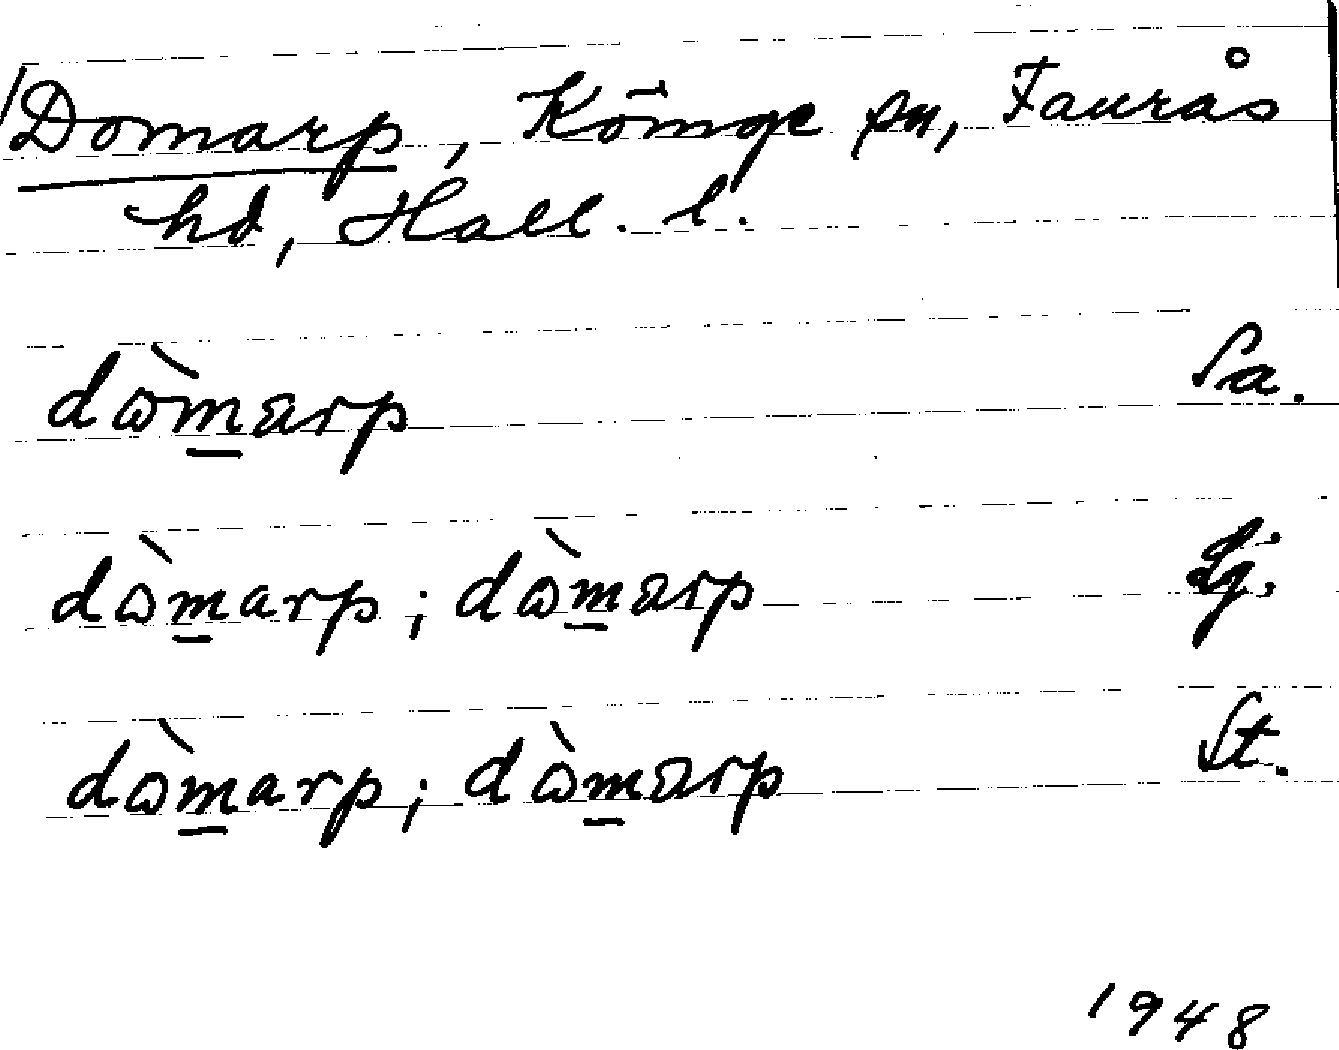 Domarp, Köinge sn, Faurås
hd, Hall. l.
dὼm̲ɑrp Sa.
dὼm̲arp; dὼm̲ɑrp Lj.
dὼm̲arp; dὼm̲ɑrp St.
1948